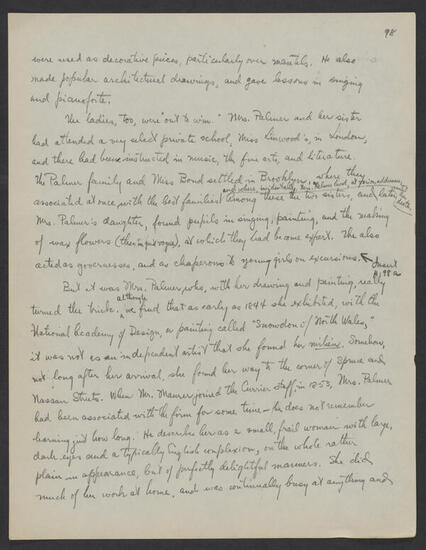 98
were used as decorative pieces, particularly over mantels. He also
made popular architectural drawings, and gave lessons in singing
and pianoforte.
The ladies, too, were "out to win." Mrs. Palmer and her sister
had attended a very select private school, Miss Linwood's, in London,
and there had been instructed in music, the fine arts, and literature.
The Palmer family and Miss Bond settled in Brooklyn, where they
and where, incidentally, Mrs. Palmer lived, at
associated at once with the best families. Among these the two sisters, and later,
Mrs. Palmer's daughter, found pupils in singing, painting, and the making
of wax flowers (their own), at which they had become expert. She also
acted as governesses, and as chaperons to young girls on excursions. Insert
98 a
But it was Mrs. Palmer who, with her drawing and painting, really
although
turned the trick. we find that as early as 1844 she exhibited, with the
National Academy of Design, a painting called "Snowdon / North Wales,"
it was not as an independent artist that she found her milieu. Somehow,
not long after her arrival, she found her way to the corner of Spruce and
Nassau Streets. When Mr. Maurer joined the Currier staff, in 1853, Mrs. Palmer
had been associated with the firm for some time — he does not remember
learning just how long. He describes her as a small, frail woman with large,
dark eyes and a typically English complexion, on the whole rather
plain in appearance, but of perfectly delightful manners. She did
much of her work at home, and was continually busy at anything and